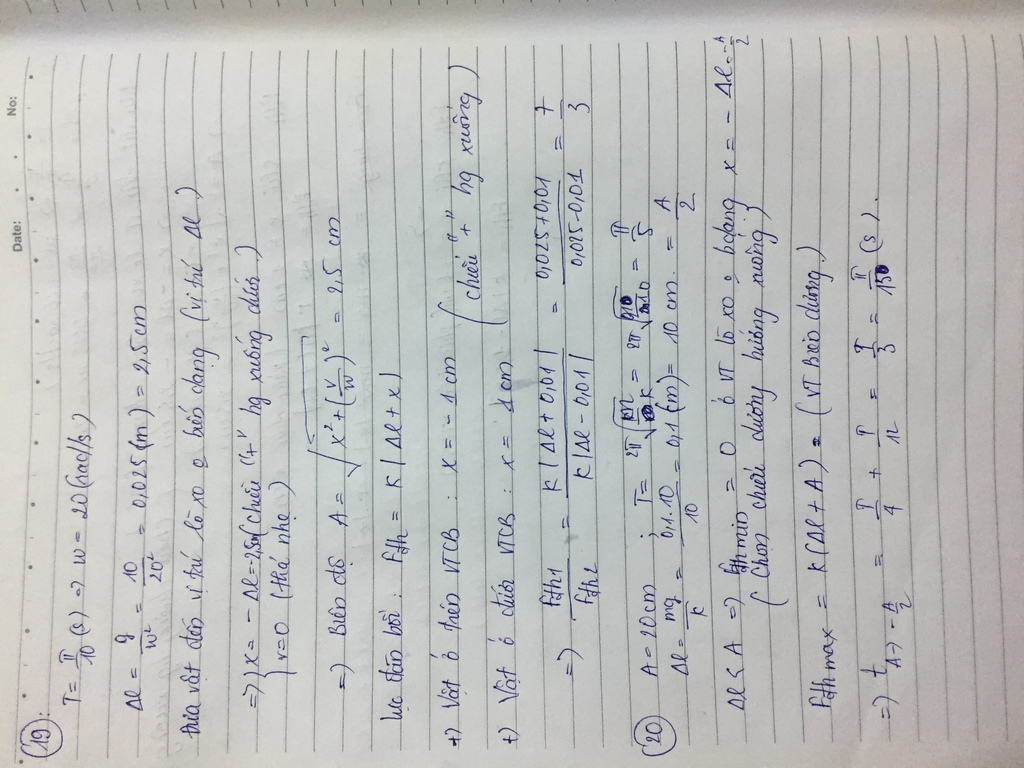 Date: No:
(19):
T = π/10 (s) => w = 20 (rad/s)
Δl = g/w² = 10/20² = 0,025 (m) = 2,5cm
Đưa vật đến vị trí lò xo o biến dạng (vị trí Δl)
=> { x = - Δl = -2,5cm (chiều "+" hg xuống dưới)
v = 0 (thả nhẹ)
=> Biên độ A = √(x² + (v/w)²) = 2,5 cm
Lực đàn hồi: Fđh = K |Δl + x|
+) Vật ở trên VTCB : x = - 1 cm (chiều "+" hg xuống)
+) Vật ở dưới VTCB : x = 1 cm
=> Fđh1/Fđh2 = K|Δl + 0,01| / K|Δl - 0,01| = 0,025+0,01 / 0,025-0,01 = 7/3
(20) A = 20cm ; T = 2π√(m/K) = 2π = π/5
Δl = mg/K = 0,1.10/10 = 0,1 (m) = 10 cm = A/2
Δl < A => Fđh min = 0 ở VT lò xo o bdạng x = - Δl = -A/2
(Chọn chiều dương hướng xuống)
Fđh max = K(Δl + A) = (VT Biên dương)
=> t A→ -A/2 = T/4 + T/12 = T/3 = π/15 (s).